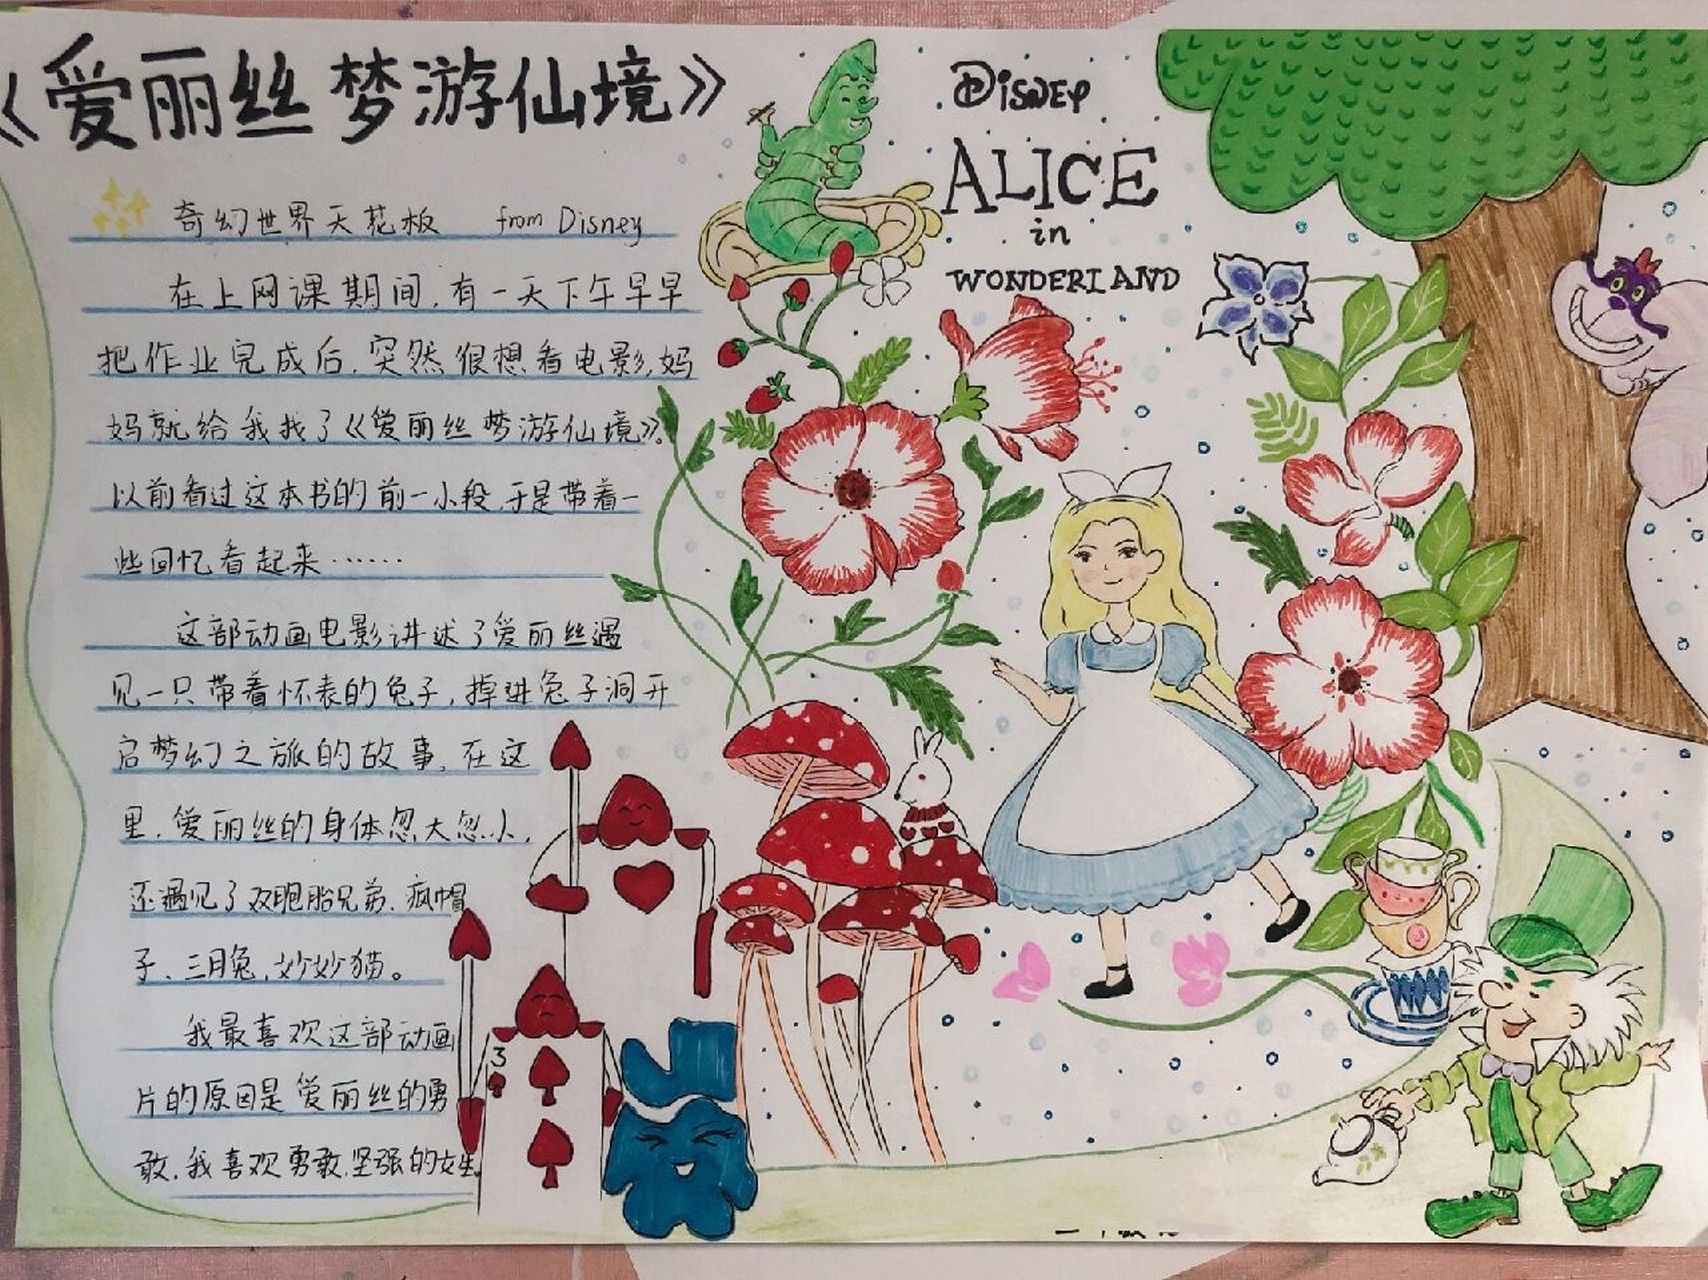 《爱丽丝梦游仙境》
Disney
ALICE
in
WONDERLAND
奇幻世界天花板 from Disney
在上网课期间,有一天下午早早
把作业完成后,突然很想看电影,妈
妈就给我找了《爱丽丝梦游仙境》。
以前看过这本书的前一小段,于是带着一
些回忆看起来……
这部动画电影讲述了爱丽丝遇
见一只带着怀表的兔子,掉进兔子洞开
启梦幻之旅的故事,在这
里,爱丽丝的身体忽大忽小,
还遇见了双胞胎兄弟、疯帽
子、三月兔,妙妙猫。
我最喜欢这部动画
片的原因是爱丽丝的勇
敢,我喜欢勇敢,坚强的女生。
3